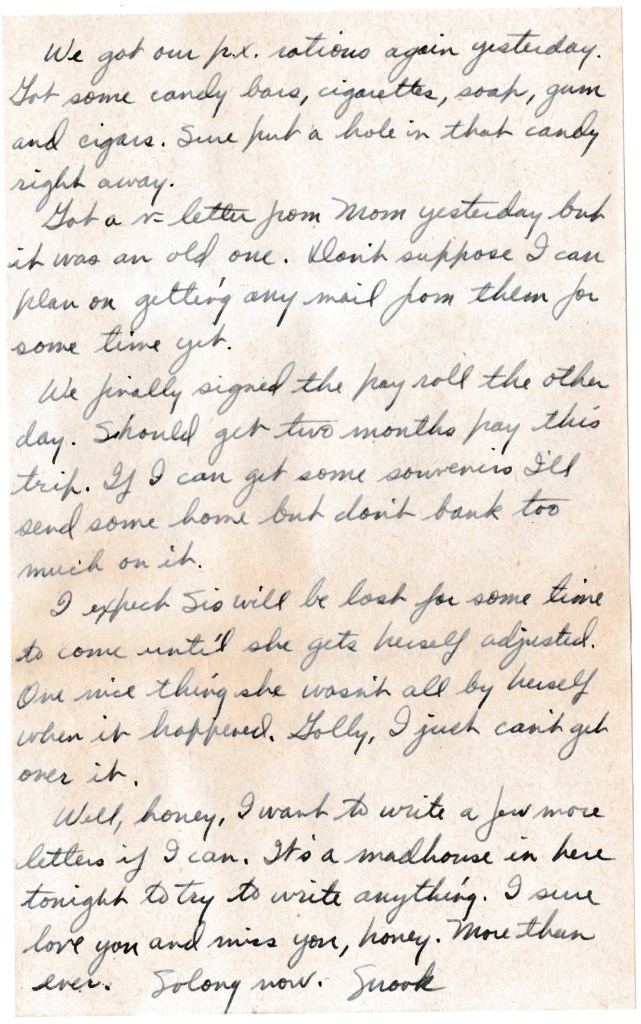 We got our p.x. rations again yesterday.
Got some candy bars, cigarettes, soap, gum
and cigars. Sure put a hole in that candy
right away.
Got a v-letter from Mom yesterday but
it was an old one. Don't suppose I can
plan on getting any mail from them for
some time yet.
We finally signed the pay roll the other
day. Should get two months pay this
trip. If I can get some souvenirs I'll
send some home but don't bank too
much on it.
I expect Sis will be lost for some time
to come until she gets herself adjusted.
One nice thing she wasn't all by herself
when it happened. Golly, I just can't get
over it.
Well, honey, I want to write a few more
letters if I can. It's a madhouse in here
tonight to try to write anything. I sure
love you and miss you, honey. More than
ever. Solong now. Snook